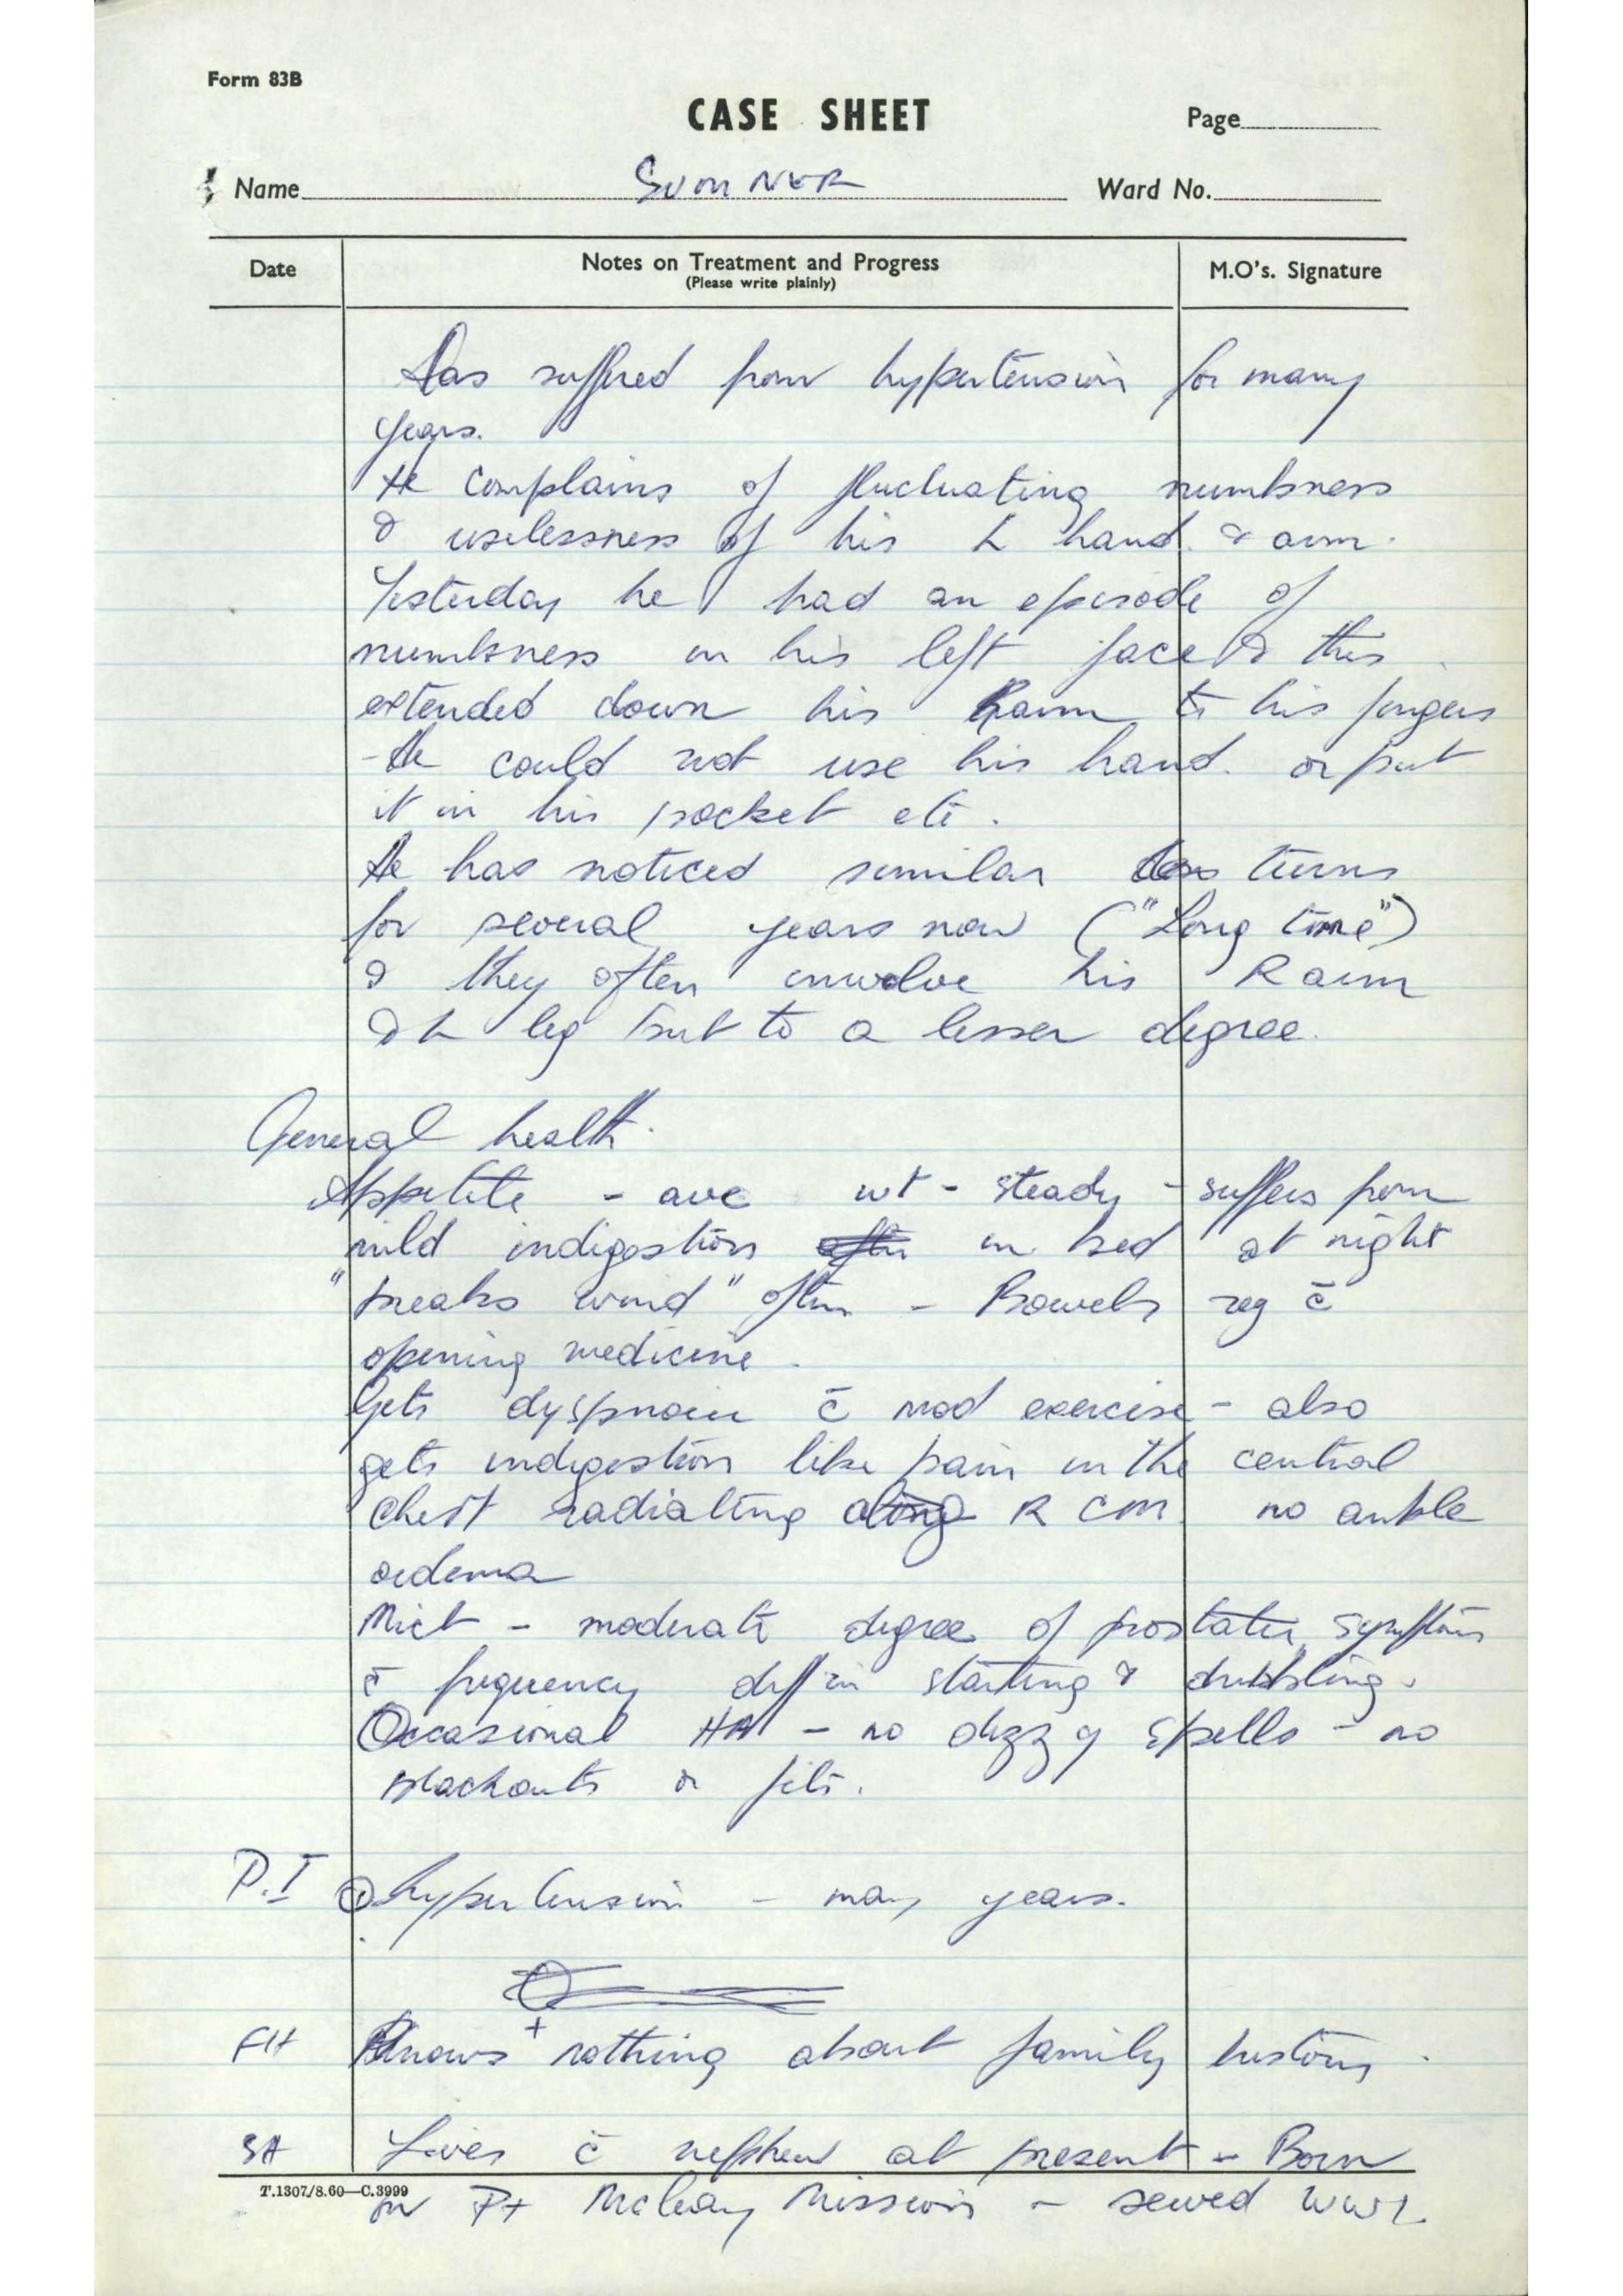 Form 83B
CASE SHEET
Page
Name SUMNER Ward No.
Date Notes on Treatment and Progress M.O's. Signature
(Please write plainly)
Has suffered from hypertension for many
years.
He complains of fluctuating numbness
& uselessness of his L hand & arm.
Yesterday he had an episode of
numbness in his left face & this
extended down his arm to his fingers
- He could not use his hand or put
it in his pocket etc.
He has noticed similar turns
for several years now ("Long time")
& they often involve his R arm
& L leg but to a lesser degree.
General health.
Appetite - ave wt - steady - suffers from
mild indigestion often in bed at night
"breaks wind" often - Bowels reg c̄
opening medicine.
Gets dyspnoea c̄ mod exercise - also
gets indigestion like pain in the central
chest radiating along R no ankle
oedema
Mict - moderate degree of prostatic symptoms
c̄ frequency diff in starting & dribbling.
Occasional HA - no dizzy spells - no
blackouts or fits.
P.I ① hypertension - many years.
FH Knows nothing about family history.
SH Lives c̄ nephew at present - Born
T.1307/8.60—C.3999
on Pt McLeay Mission - served WW1